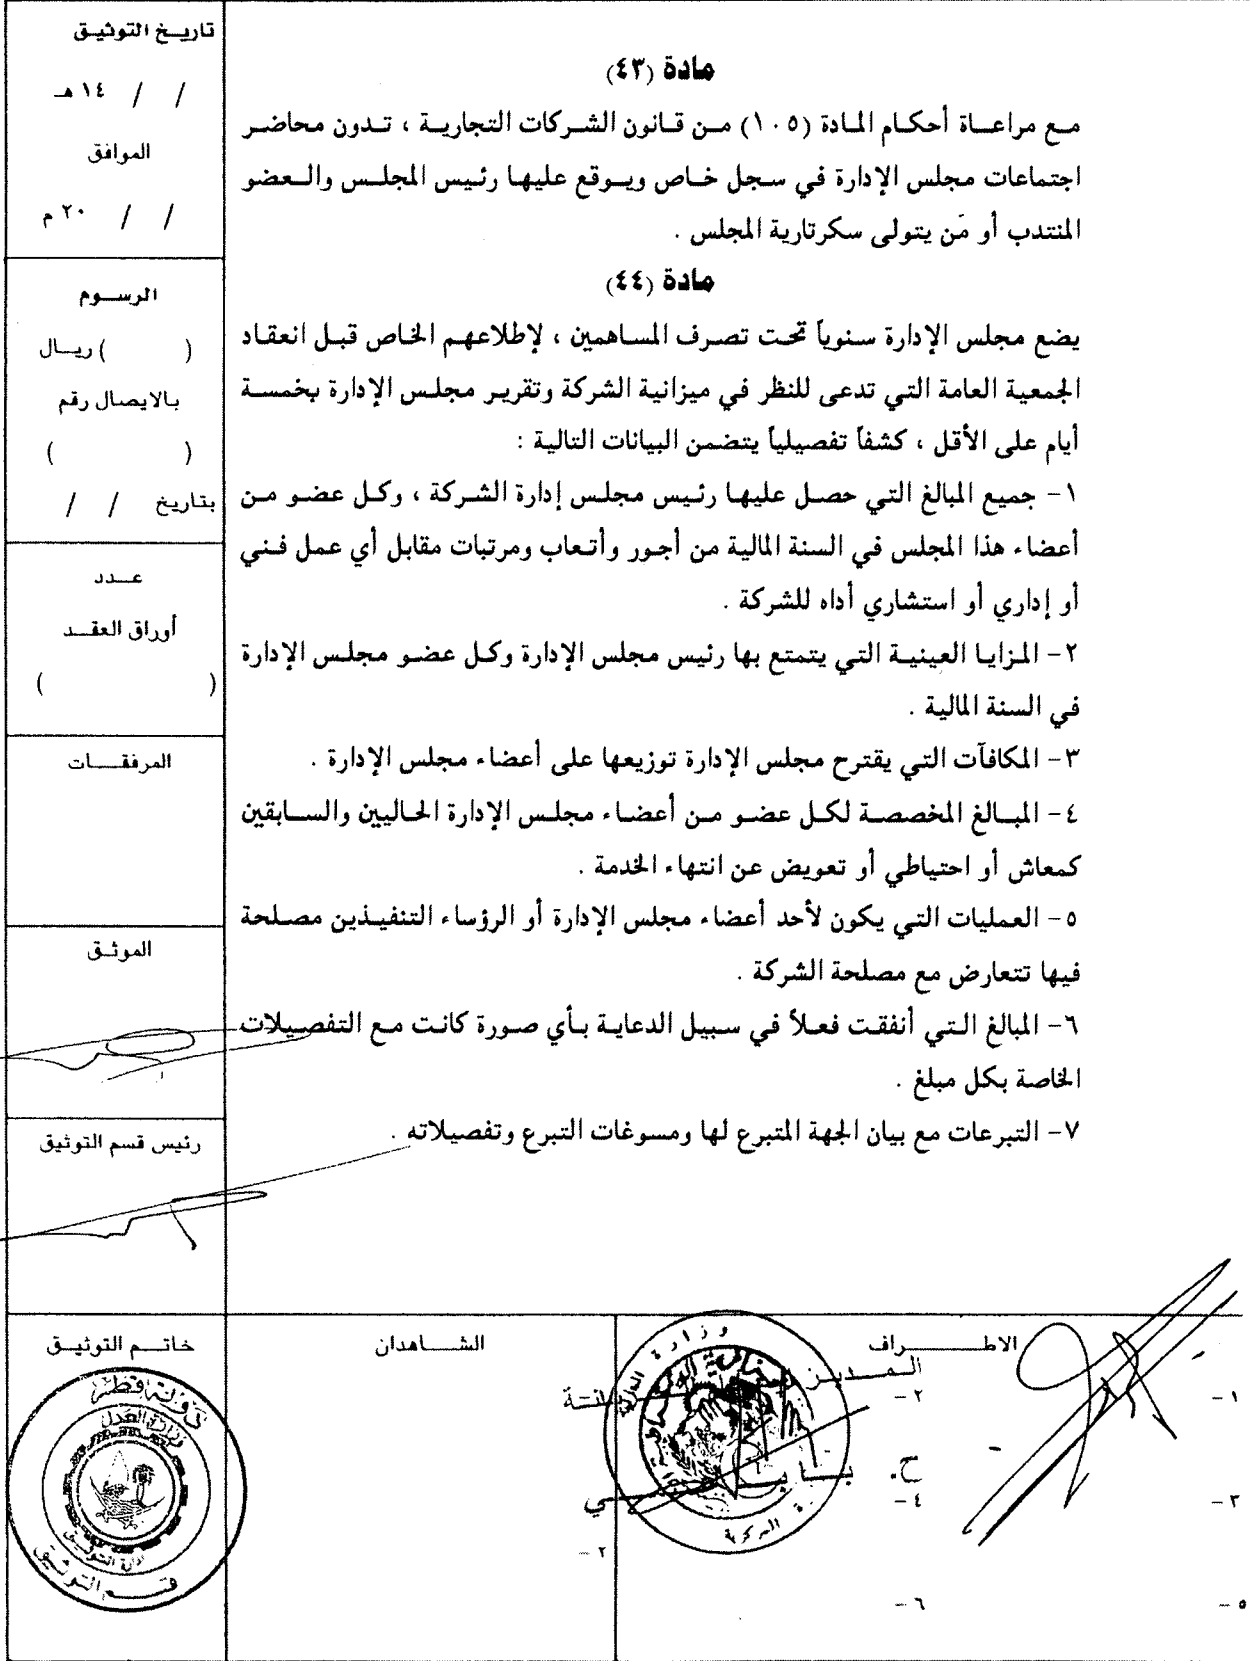 مادة (٤٣)
مع مراعاة أحكام المادة (١٠٥) من قانون الشركات التجارية ، تدون محاضر
اجتماعات مجلس الإدارة في سجل خاص ويوقع عليها رئيس المجلس والعضو
المنتدب أو مَن يتولى سكرتارية المجلس .
مادة (٤٤)
يضع مجلس الإدارة سنوياً تحت تصرف المساهمين ، لإطلاعهم الخاص قبل انعقاد
الجمعية العامة التي تدعى للنظر في ميزانية الشركة وتقرير مجلس الإدارة بخمسة
أيام على الأقل ، كشفاً تفصيلياً يتضمن البيانات التالية :
١- جميع المبالغ التي حصل عليها رئيس مجلس إدارة الشركة ، وكل عضو من
أعضاء هذا المجلس في السنة المالية من أجور وأتعاب ومرتبات مقابل أي عمل فني
أو إداري أو استشاري أداه للشركة .
٢- المزايا العينية التي يتمتع بها رئيس مجلس الإدارة وكل عضو مجلس الإدارة
في السنة المالية .
٣- المكافآت التي يقترح مجلس الإدارة توزيعها على أعضاء مجلس الإدارة .
٤- المبالغ المخصصة لكل عضو من أعضاء مجلس الإدارة الحاليين والسابقين
كمعاش أو احتياطي أو تعويض عن انتهاء الخدمة .
٥- العمليات التي يكون لأحد أعضاء مجلس الإدارة أو الرؤساء التنفيذين مصلحة
فيها تتعارض مع مصلحة الشركة .
٦- المبالغ التي أنفقت فعلاً في سبيل الدعاية بأي صورة كانت مع التفصيلات
الخاصة بكل مبلغ .
٧- التبرعات مع بيان الجهة المتبرع لها ومسوغات التبرع وتفصيلاته .
تاريخ التوثيق
/ / ١٤ هـ
الموافق
/ / ٢٠ م
الرسوم
( ) ريال
بالايصال رقم
( )
بتاريخ / /
عدد
أوراق العقد
( )
المرفقات
الموثق
رئيس قسم التوثيق
الاطراف
١ -
٢ -
٣ -
٤ -
٥ -
٦ -
الشاهدان
٢ -
خاتم التوثيق
دولة قطر
وزارة العدل
إدارة التوثيق
قسم التوثيق